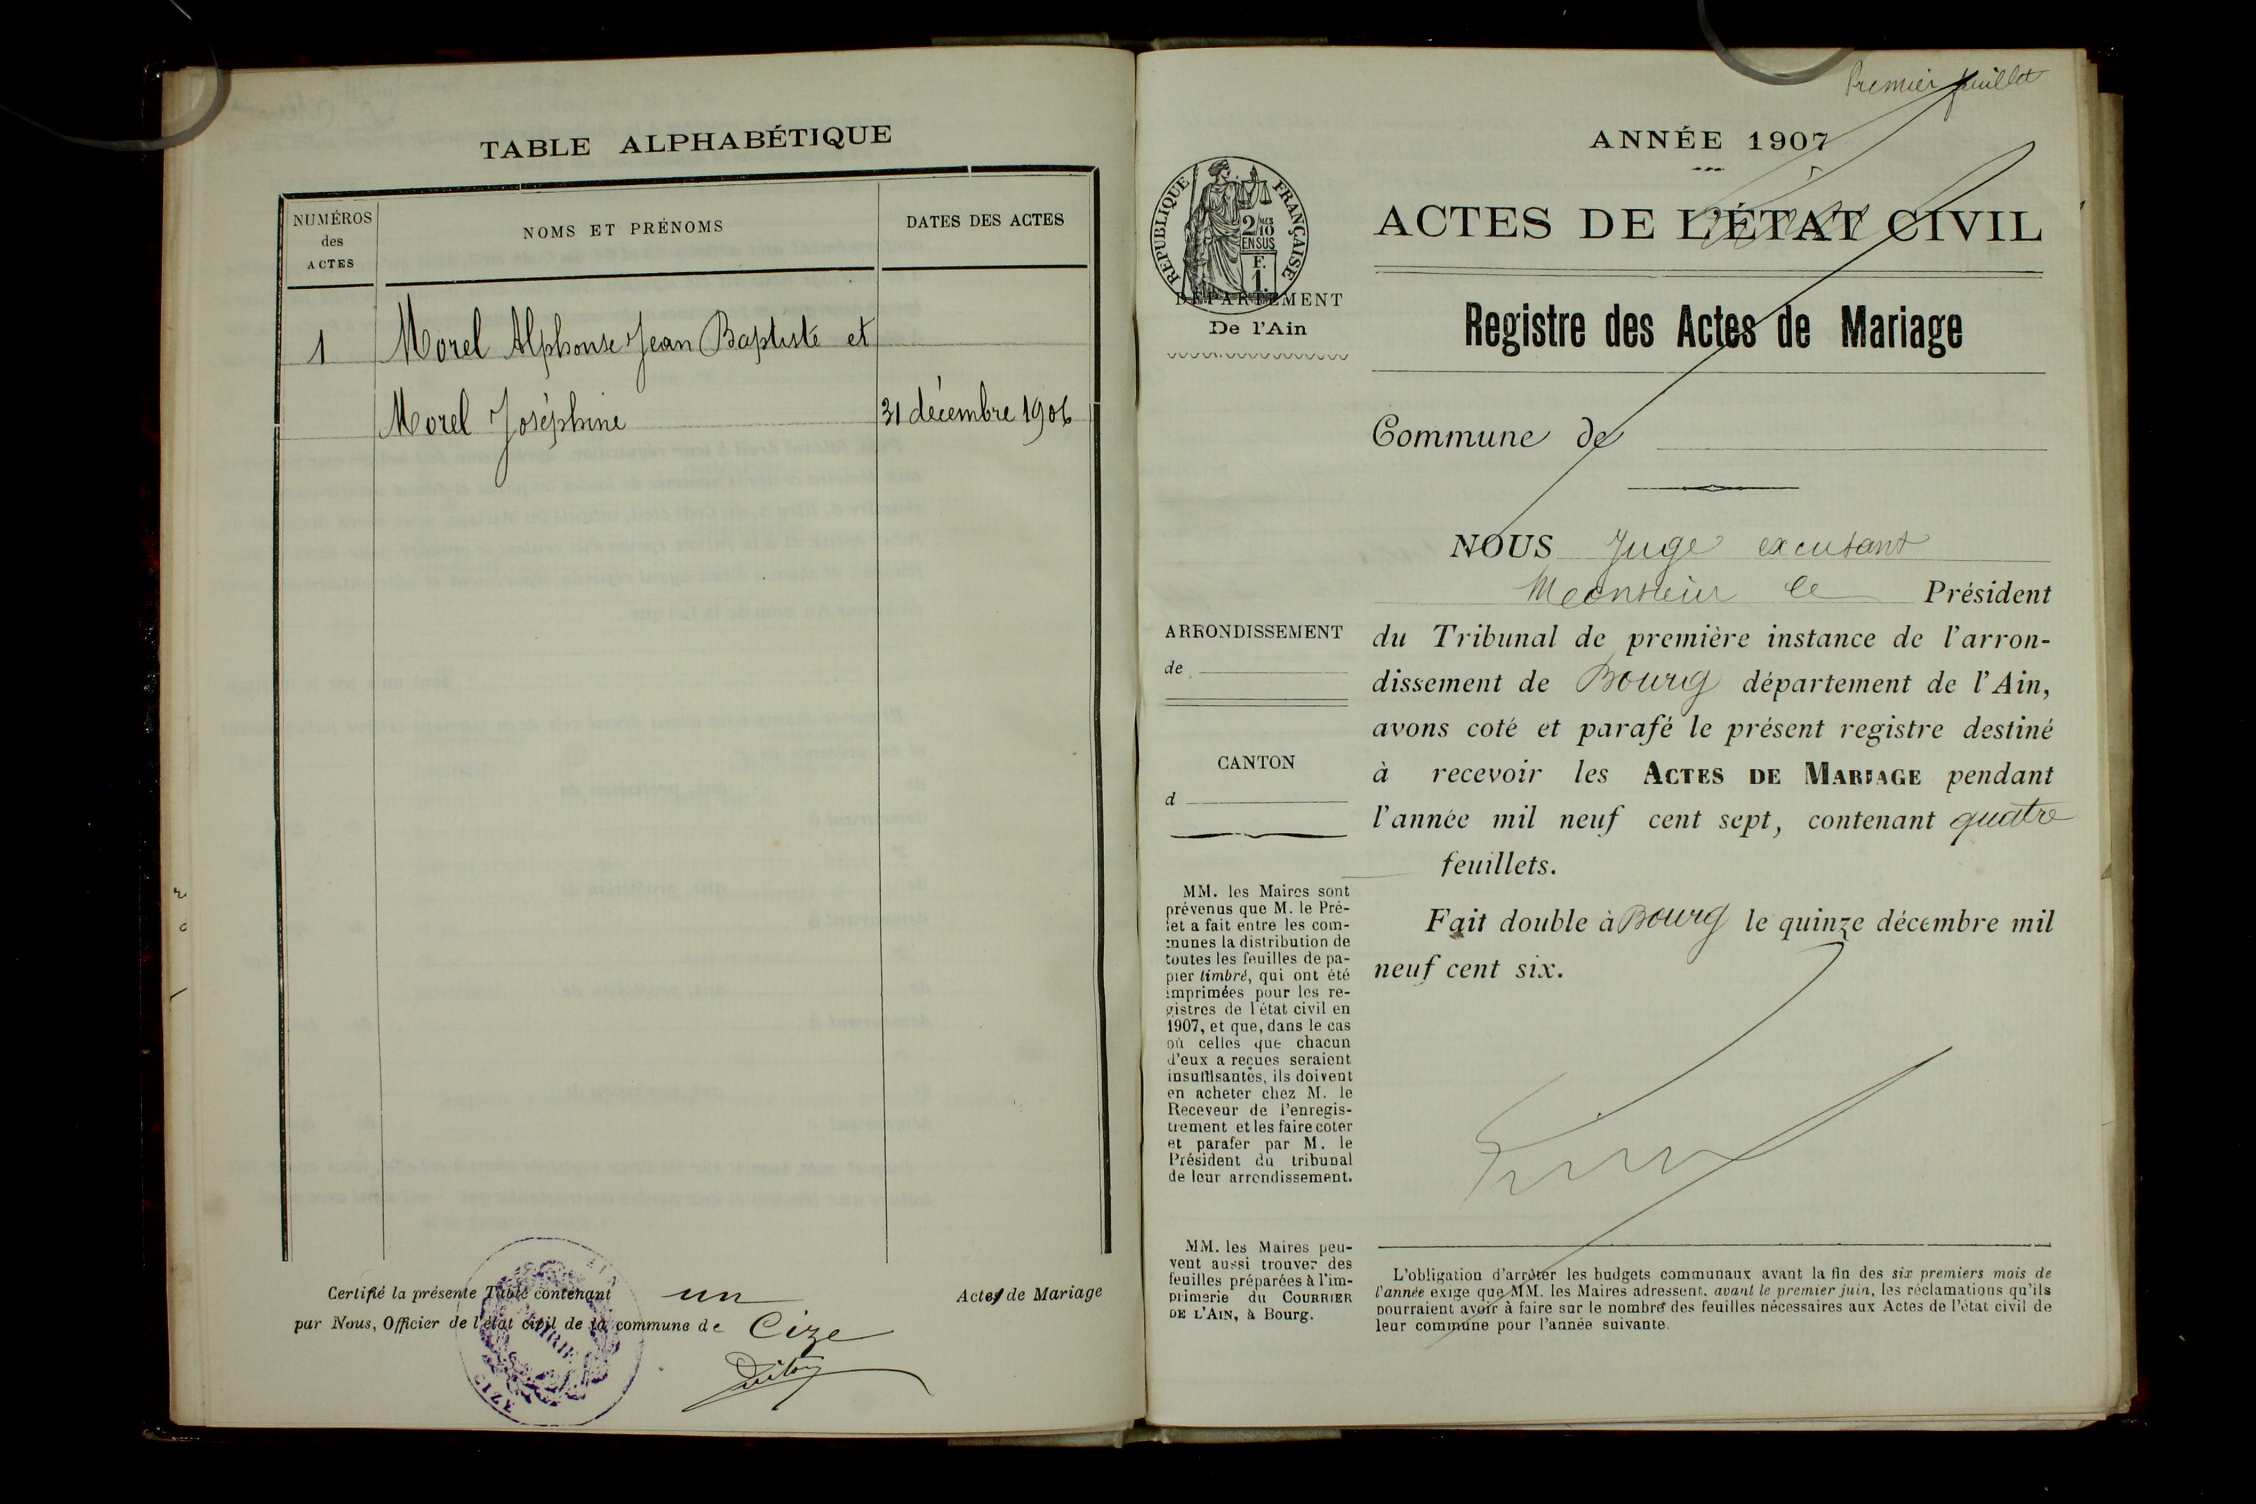 TABLE ALPHABÉTIQUE
NUMÉROS
des
ACTES
NOMS ET PRÉNOMS
DATES DES ACTES
1 Morel Alphonse Jean Baptiste et
Morel Joséphine 31 décembre 1906
Certifié la présente Table contenant un Actes de Mariage
par Nous, Officier de l'état civil de la commune de Cize
MAIRIE
CIZE
AIN
Premier feuillet
ANNÉE 1907
RÉPUBLIQUE FRANÇAISE
2/10
EN SUS
F.
1.
ACTES DE L'ÉTAT CIVIL
DÉPARTEMENT
De l'Ain
Registre des Actes de Mariage
Commune de
NOUS Juge excusant
Monsieur le Président
du Tribunal de première instance de l'arron-
dissement de Bourg département de l'Ain,
avons coté et parafé le présent registre destiné
à recevoir les ACTES DE MARIAGE pendant
l'année mil neuf cent sept, contenant quatre
feuillets.
Fait double à Bourg le quinze décembre mil
neuf cent six.
ARRONDISSEMENT
de
CANTON
d
MM. les Maires sont
prévenus que M. le Pré-
fet a fait entre les com-
munes la distribution de
toutes les feuilles de pa-
pier timbré, qui ont été
imprimées pour les re-
gistres de l'état civil en
1907, et que, dans le cas
où celles que chacun
d'eux a reçues seraient
insuffisantes, ils doivent
en acheter chez M. le
Receveur de l'enregis-
trement et les faire coter
et parafer par M. le
Président du tribunal
de leur arrondissement.
MM. les Maires peu-
vent aussi trouver des
feuilles préparées à l'im-
primerie du COURRIER
DE L'AIN, à Bourg.
L'obligation d'arrêter les budgets communaux avant la fin des six premiers mois de
l'année exige que MM. les Maires adressent, avant le premier juin, les réclamations qu'ils
pourraient avoir à faire sur le nombre des feuilles nécessaires aux Actes de l'état civil de
leur commune pour l'année suivante.